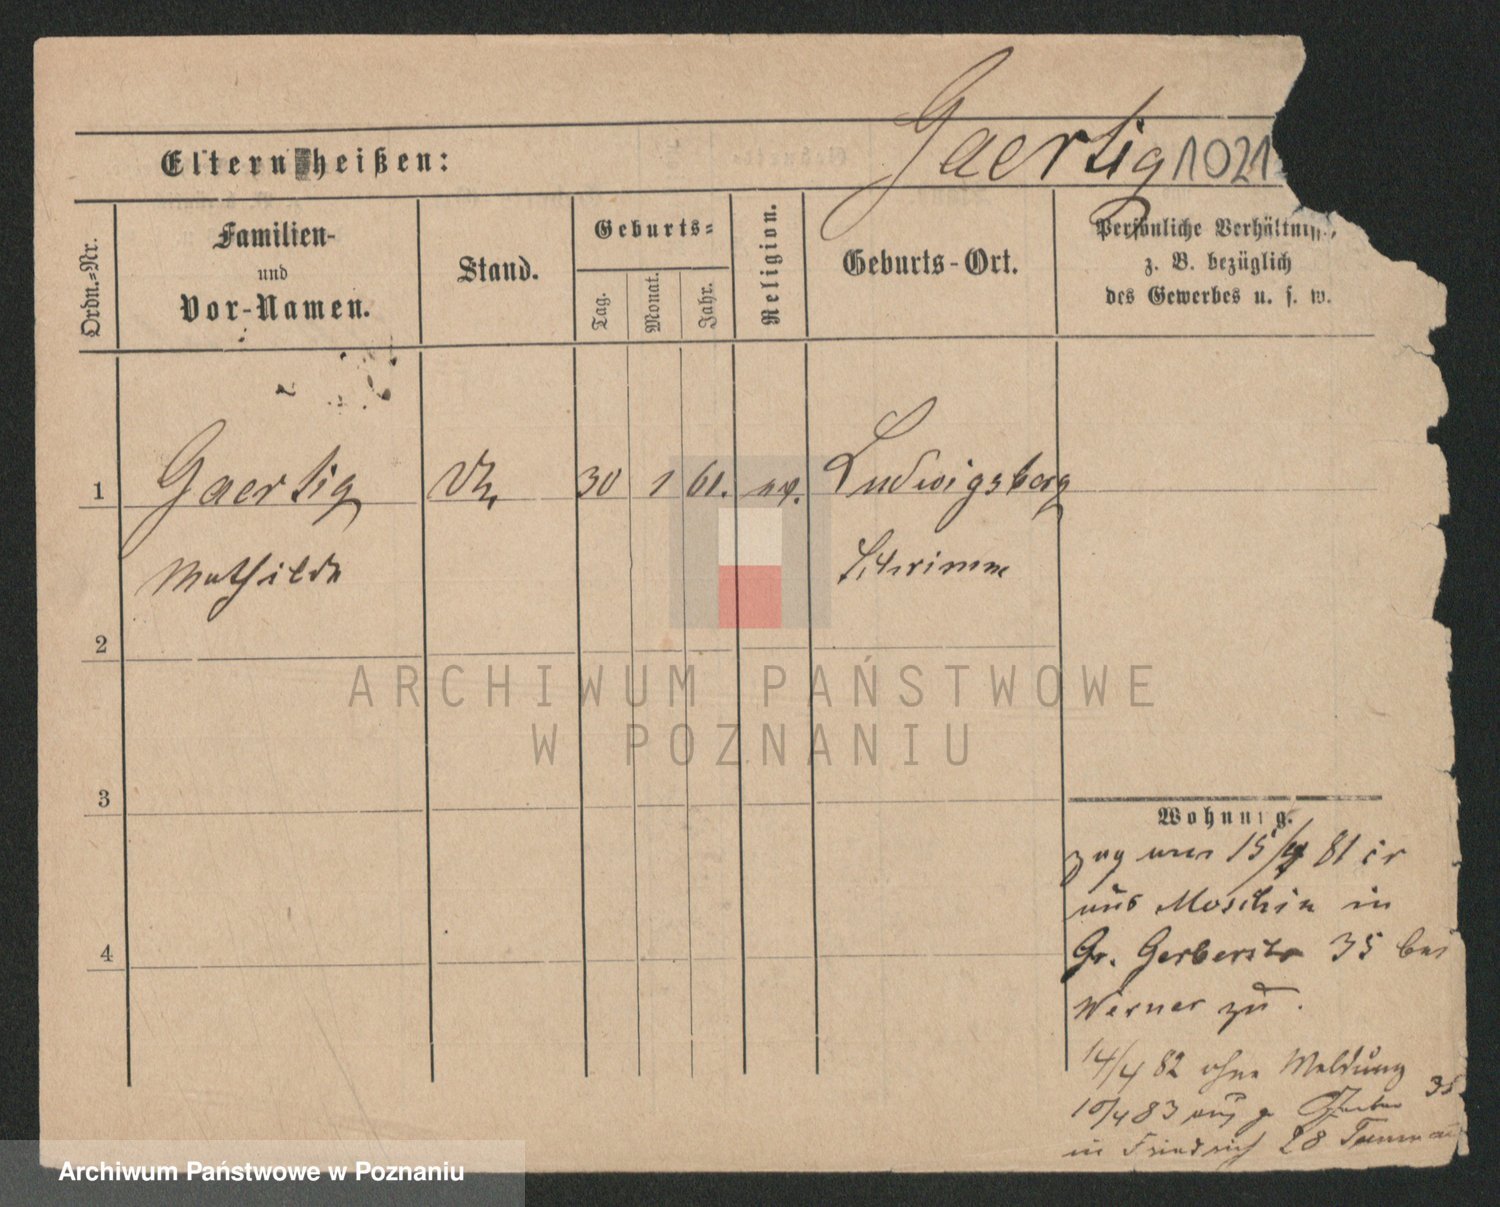 Gaertig 1021
Eltern heißen:
Ordn.=Nr.
Familien-
und
Vor-Namen.
Stand.
Geburts=
Tag.
Monat.
Jahr.
Religion.
Geburts-Ort.
Persönliche Verhältniss
z. B. bezüglich
des Gewerbes u. s. w.
1
Gaertig
30
1
61.
ev.
Ludwigsberg
Mathilde
Schrimm
2
3
4
ARCHIWUM PAŃSTWOWE
W POZNANIU
Wohnung.
zog 15/4 81 
aus Moschin in
Gr. Gerberstr 35 bei
Werner zu.
14/4 82 ohne Meldung
10/4 83 aus g Gerber 35
in Friedrich 28
Archiwum Państwowe w Poznaniu